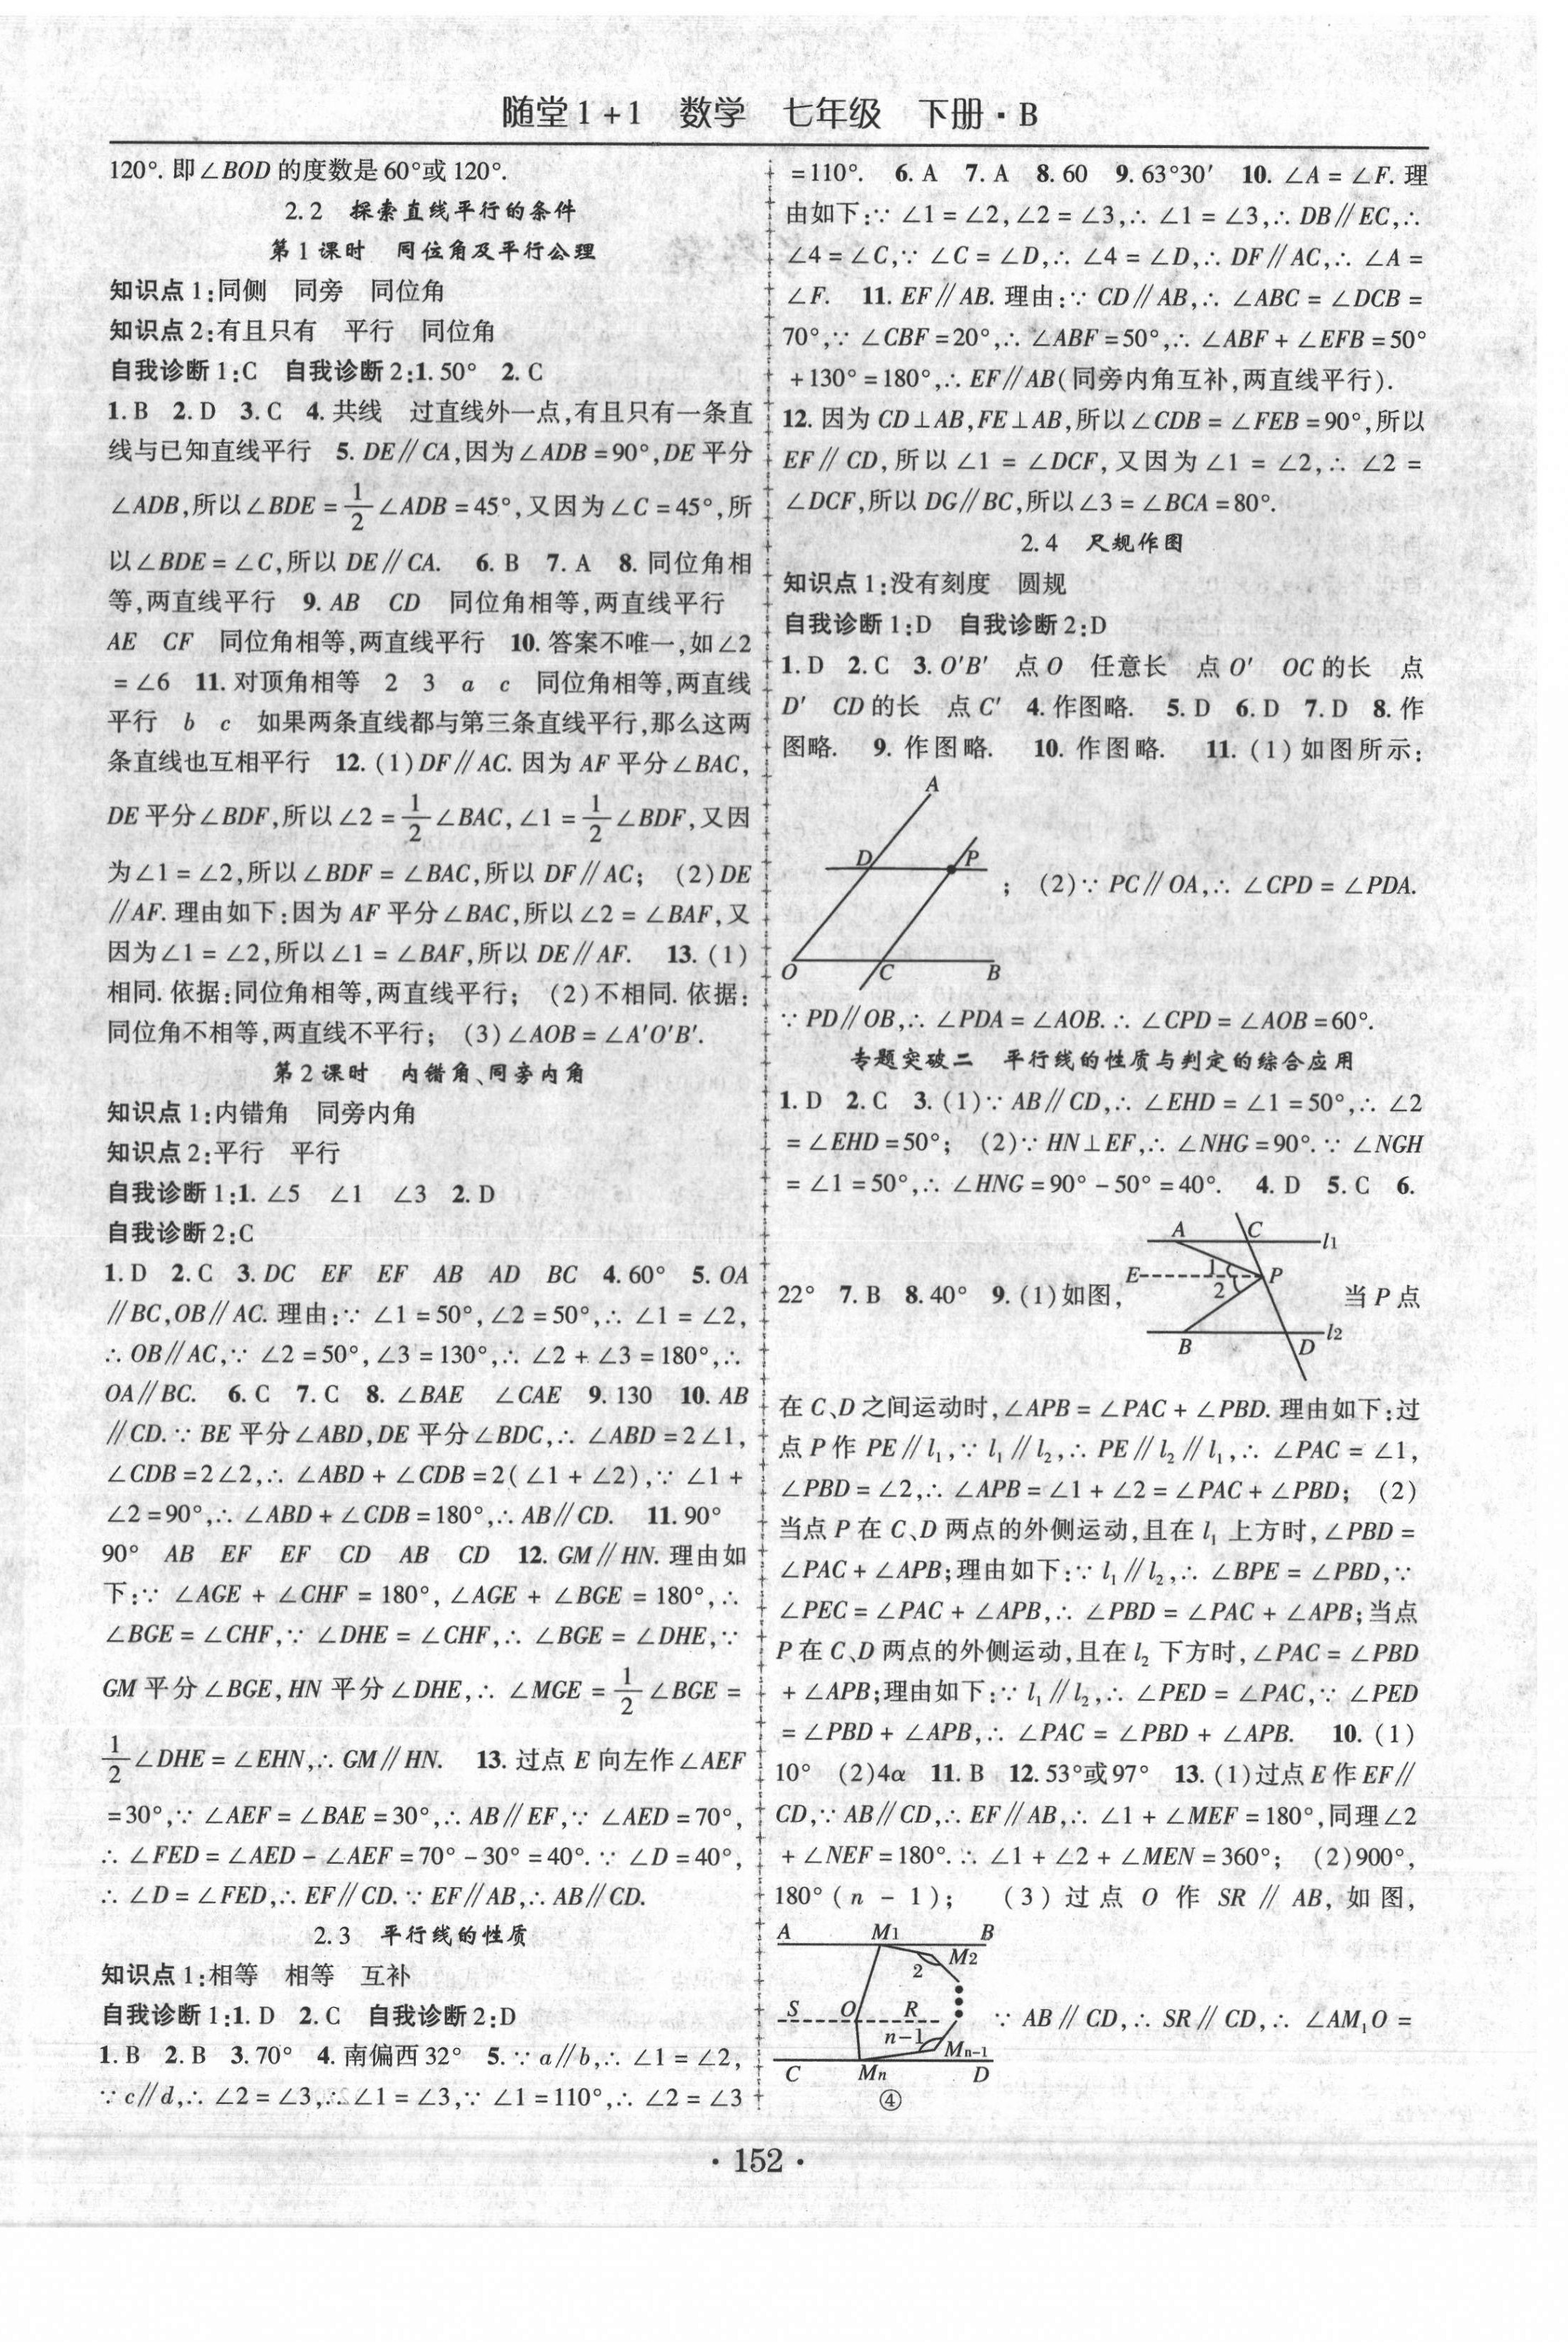 随堂1+1 数学 七年级 下册·B
120°. 即∠BOD 的度数是60°或120°.
2.2 探索直线平行的条件
第1课时 同位角及平行公理
知识点1:同侧 同旁 同位角
知识点2:有且只有 平行 同位角
自我诊断1:C 自我诊断2:1. 50° 2. C
1. B 2. D 3. C 4. 共线 过直线外一点,有且只有一条直
线与已知直线平行 5. DE∥CA,因为∠ADB=90°,DE平分
∠ADB,所以∠BDE=1/2∠ADB=45°,又因为∠C=45°,所
以∠BDE=∠C,所以DE∥CA. 6. B 7. A 8. 同位角相
等,两直线平行 9. AB CD 同位角相等,两直线平行
AE CF 同位角相等,两直线平行 10. 答案不唯一,如∠2
=∠6 11. 对顶角相等 2 3 a c 同位角相等,两直线
平行 b c 如果两条直线都与第三条直线平行,那么这两
条直线也互相平行 12. (1)DF∥AC. 因为AF平分∠BAC,
DE平分∠BDF,所以∠2=1/2∠BAC,∠1=1/2∠BDF,又因
为∠1=∠2,所以∠BDF=∠BAC,所以DF∥AC; (2)DE
∥AF. 理由如下:因为AF平分∠BAC,所以∠2=∠BAF,又
因为∠1=∠2,所以∠1=∠BAF,所以DE∥AF. 13. (1)
相同. 依据:同位角相等,两直线平行; (2)不相同. 依据:
同位角不相等,两直线不平行; (3)∠AOB=∠A′O′B′.
第2课时 内错角、同旁内角
知识点1:内错角 同旁内角
知识点2:平行 平行
自我诊断1:1. ∠5 ∠1 ∠3 2. D
自我诊断2:C
1. D 2. C 3. DC EF EF AB AD BC 4. 60° 5. OA
∥BC,OB∥AC. 理由:∵∠1=50°,∠2=50°,∴∠1=∠2,
∴OB∥AC,∵∠2=50°,∠3=130°,∴∠2+∠3=180°,∴
OA∥BC. 6. C 7. C 8. ∠BAE ∠CAE 9. 130 10. AB
∥CD. ∵BE平分∠ABD,DE平分∠BDC,∴∠ABD=2∠1,
∠CDB=2∠2,∴∠ABD+∠CDB=2(∠1+∠2),∵∠1+
∠2=90°,∴∠ABD+∠CDB=180°,∴AB∥CD. 11. 90°
90° AB EF EF CD AB CD 12. GM∥HN. 理由如
下:∵∠AGE+∠CHF=180°,∠AGE+∠BGE=180°,∴
∠BGE=∠CHF,∵∠DHE=∠CHF,∴∠BGE=∠DHE,∵
GM平分∠BGE,HN平分∠DHE,∴∠MGE=1/2∠BGE=
1/2∠DHE=∠EHN,∴GM∥HN. 13. 过点E向左作∠AEF
=30°,∵∠AEF=∠BAE=30°,∴AB∥EF,∵∠AED=70°,
∴∠FED=∠AED-∠AEF=70°-30°=40°. ∵∠D=40°,
∴∠D=∠FED,∴EF∥CD. ∵EF∥AB,∴AB∥CD.
2.3 平行线的性质
知识点1:相等 相等 互补
自我诊断1:1. D 2. C 自我诊断2:D
1. B 2. B 3. 70° 4. 南偏西32° 5. ∵a∥b,∴∠1=∠2,
∵c∥d,∴∠2=∠3,∴∠1=∠3,∵∠1=110°,∴∠2=∠3
=110°. 6. A 7. A 8. 60 9. 63°30′ 10. ∠A=∠F. 理
由如下:∵∠1=∠2,∠2=∠3,∴∠1=∠3,∴DB∥EC,∴
∠4=∠C,∵∠C=∠D,∴∠4=∠D,∴DF∥AC,∴∠A=
∠F. 11. EF∥AB. 理由:∵CD∥AB,∴∠ABC=∠DCB=
70°,∵∠CBF=20°,∴∠ABF=50°,∴∠ABF+∠EFB=50°
+130°=180°,∴EF∥AB(同旁内角互补,两直线平行).
12. 因为CD⊥AB,FE⊥AB,所以∠CDB=∠FEB=90°,所以
EF∥CD,所以∠1=∠DCF,又因为∠1=∠2,∴∠2=
∠DCF,所以DG∥BC,所以∠3=∠BCA=80°.
2.4 尺规作图
知识点1:没有刻度 圆规
自我诊断1:D 自我诊断2:D
1. D 2. C 3. O′B′ 点O 任意长 点O′ OC的长 点
D′ CD的长 点C′ 4. 作图略. 5. D 6. D 7. D 8. 作
图略. 9. 作图略. 10. 作图略. 11. (1)如图所示:
A
D P
O C B
; (2)∵PC∥OA,∴∠CPD=∠PDA.
∵PD∥OB,∴∠PDA=∠AOB. ∴∠CPD=∠AOB=60°.
专题突破二 平行线的性质与判定的综合应用
1. D 2. C 3. (1)∵AB∥CD,∴∠EHD=∠1=50°,∴∠2
=∠EHD=50°; (2)∵HN⊥EF,∴∠NHG=90°. ∵∠NGH
=∠1=50°,∴∠HNG=90°-50°=40°. 4. D 5. C 6.
22° 7. B 8. 40° 9. (1)如图,
A C l1
E 1 P
2
B D l2
当P点
在C、D之间运动时,∠APB=∠PAC+∠PBD. 理由如下:过
点P作PE∥l₁,∵l₁∥l₂,∴PE∥l₂∥l₁,∴∠PAC=∠1,
∠PBD=∠2,∴∠APB=∠1+∠2=∠PAC+∠PBD; (2)
当点P在C、D两点的外侧运动,且在l₁上方时,∠PBD=
∠PAC+∠APB;理由如下:∵l₁∥l₂,∴∠BPE=∠PBD,∵
∠PEC=∠PAC+∠APB,∴∠PBD=∠PAC+∠APB;当点
P在C、D两点的外侧运动,且在l₂下方时,∠PAC=∠PBD
+∠APB;理由如下:∵l₁∥l₂,∴∠PED=∠PAC,∵∠PED
=∠PBD+∠APB,∴∠PAC=∠PBD+∠APB. 10. (1)
10° (2)4α 11. B 12. 53°或97° 13. (1)过点E作EF∥
CD,∵AB∥CD,∴EF∥AB,∴∠1+∠MEF=180°,同理∠2
+∠NEF=180°. ∴∠1+∠2+∠MEN=360°; (2)900°,
180°(n-1); (3)过点O作SR∥AB,如图,
A M1 B
2 M2
S O R
n-1 Mn-1
C Mn D
④
∵AB∥CD,∴SR∥CD,∴∠AM₁O=
·152·